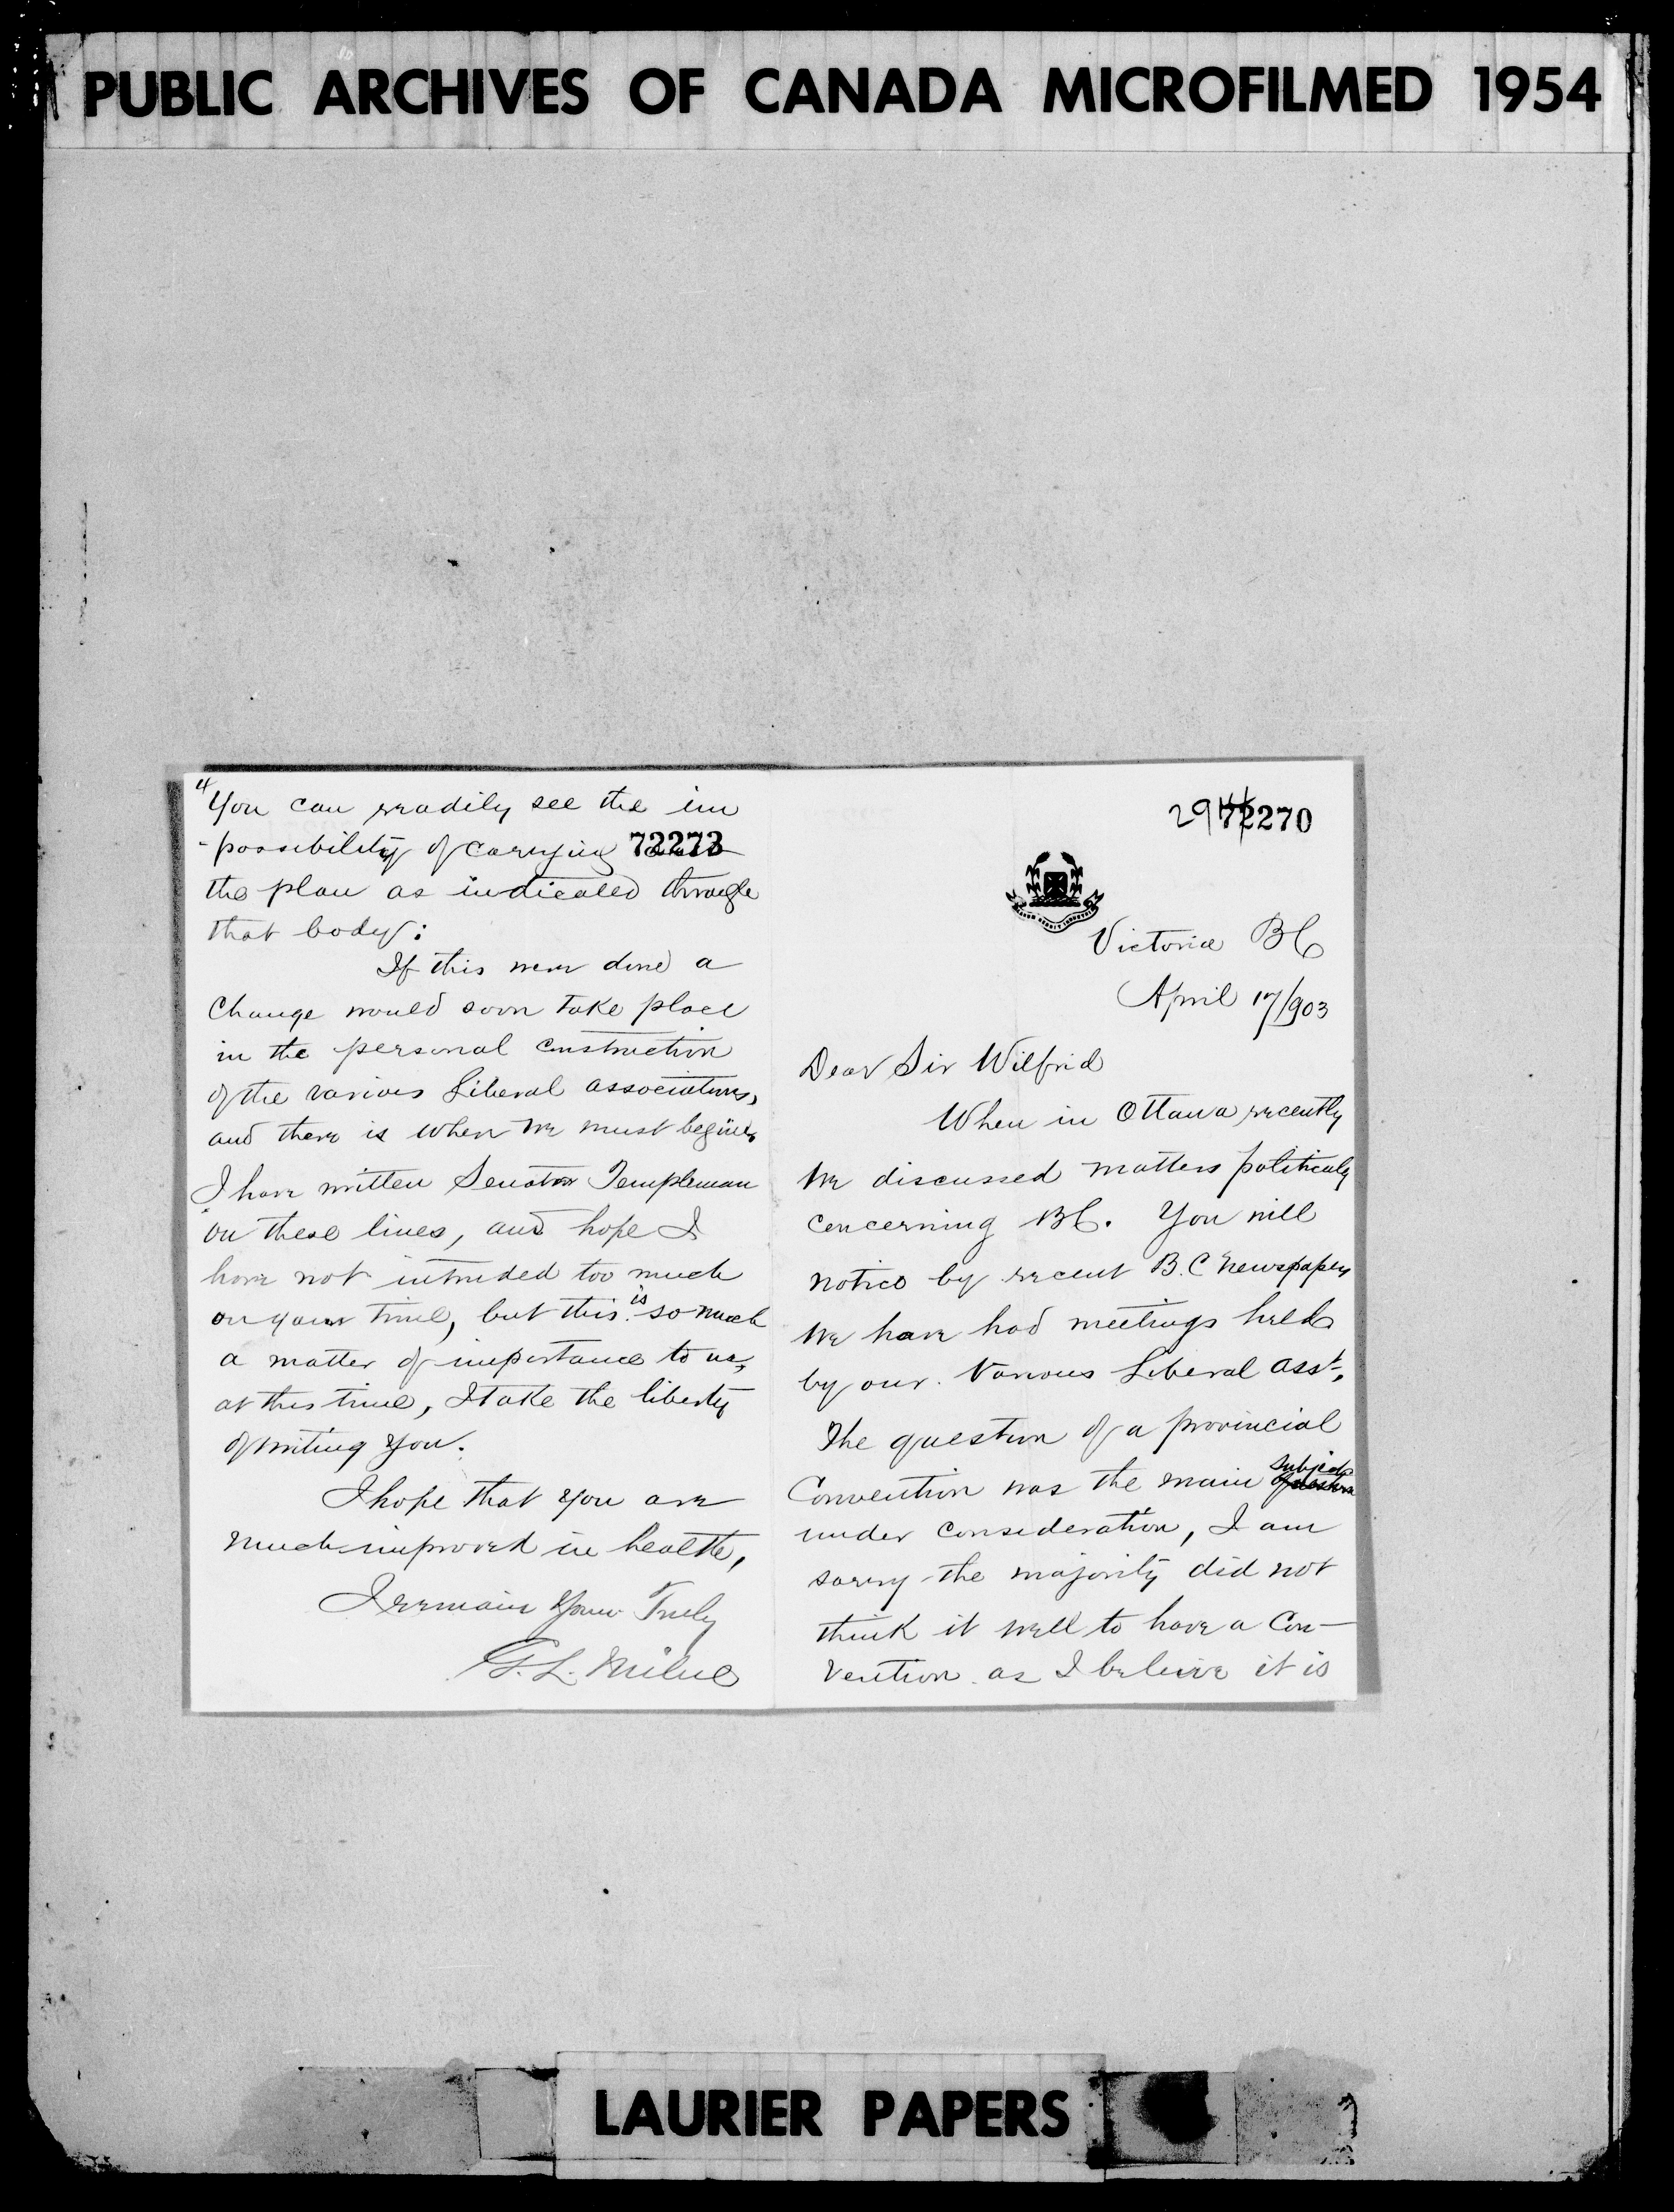 PUBLIC ARCHIVES OF CANADA MICROFILMED 1954
4
You can readily see the im
-possibility of carrying
72273
the plan as indicated through
that body:
If this were done a
Change would soon take place
in the personal construction
of the various Liberal associations,
and there is when we must begin,
I have written Senator Templeman
on these lines, and hope I
have not intruded too much
on your time, but this is so much
a matter of importance to us,
at this time, I take the liberty
of writing you.
I hope that you are
much improved in health,
I remain Yours Truly
G. L. Milne
72270
Victoria BC
April 17/903
Dear Sir Wilfrid
When in Ottawa recently
we discussed matters politicaly
concerning BC. You will
notice by recent B.C Newspapers
we have had meetings held
by our various Liberal Asst,
The question of a provincial
Convention was the main subject question
under consideration, I am
sorry the majority did not
think it well to have a Con-
vention as I beleive it is
LAURIER PAPERS